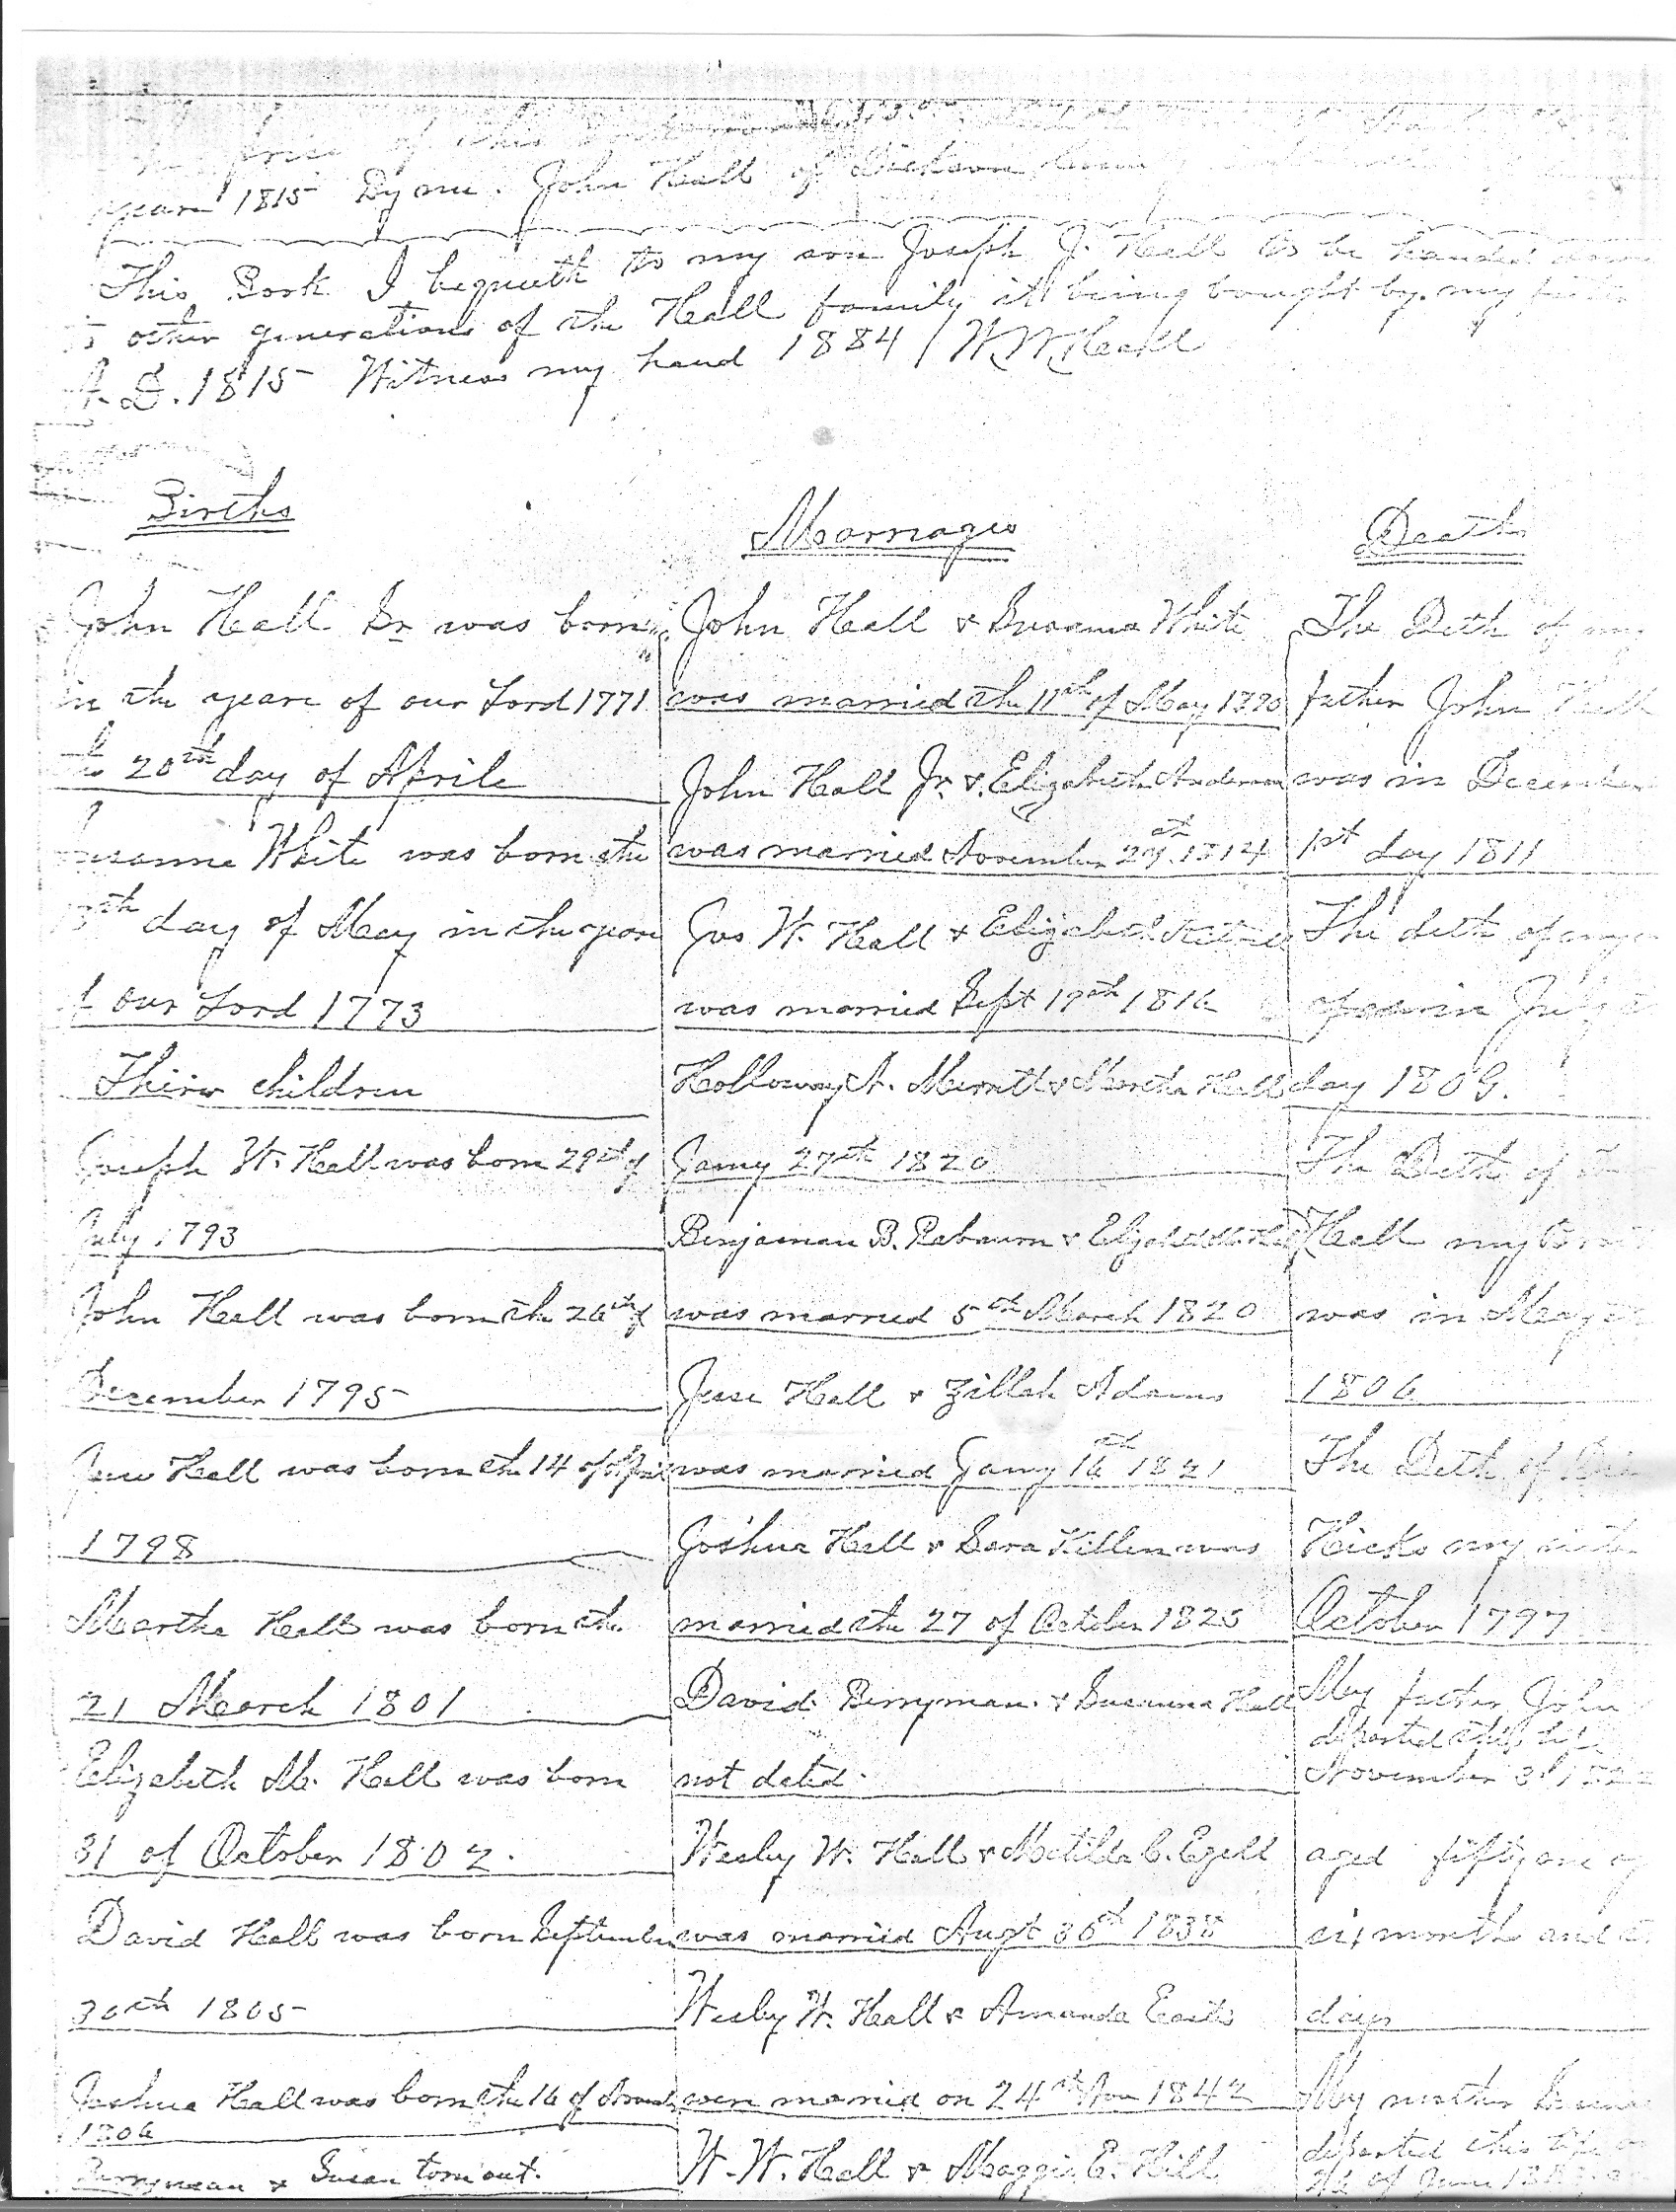 price of this
year 1815 By me. John Hall of Dickson
This Book I bequeth to my son Joseph J. Hall to be handed down
to other generations of the Hall family it being bought by my father
A. D. 1815 Witness my hand 1884 / W W Hall
Births
John Hall Sr was born
in the year of our Lord 1771
20th day of Aprile
White was born the
day of May in the year
of our Lord 1773
Their children
Joseph W. Hall was born 29th of
July 1793
John Hall was born the 26th of
December 1795
Hall was born the 14 of
1798
Martha Hall was born the
21 March 1801
Elizabeth M. Hall was born
31 of October 1802.
David Hall was born September
30th 1805
Joshua Hall was born the 16 of
1806
Berryman & Susan torn out.
Marriages
John Hall & Susanna White
was married the 11th of May
John Hall Jr. & Elizabeth
was married November 1814
Jos W. Hall & Elizabeth
was married Sept 1816
Holloway A. Merritt & Martha Hall
Jany 27th 1820
Benjaman B. & Elizabeth
was married 5th March 1820
Jesse Hall & Zillah Adams
was married Jany 16th 1821
Joshua Hall & Sara Killen was
married the 27 of October 1825
David Berryman & Susanna Hall
not dated.
Wesley W. Hall & Matilda C. Ezell
was married Augt 1838
Wesley W. Hall & Amanda
were married on 24th Nov 1842
W. W. Hall & Maggie E. Hill
Death
The Deth of my
father John Hall
was in December
1st day 1811
The deth of my
in July
day 1809.
The Deth of
Hall my
was in May
1806
The Deth of
Hicks my sister
October 1797
My father John
departed this life
November
aged fifty one
six month and
days
My mother
departed this life
of June